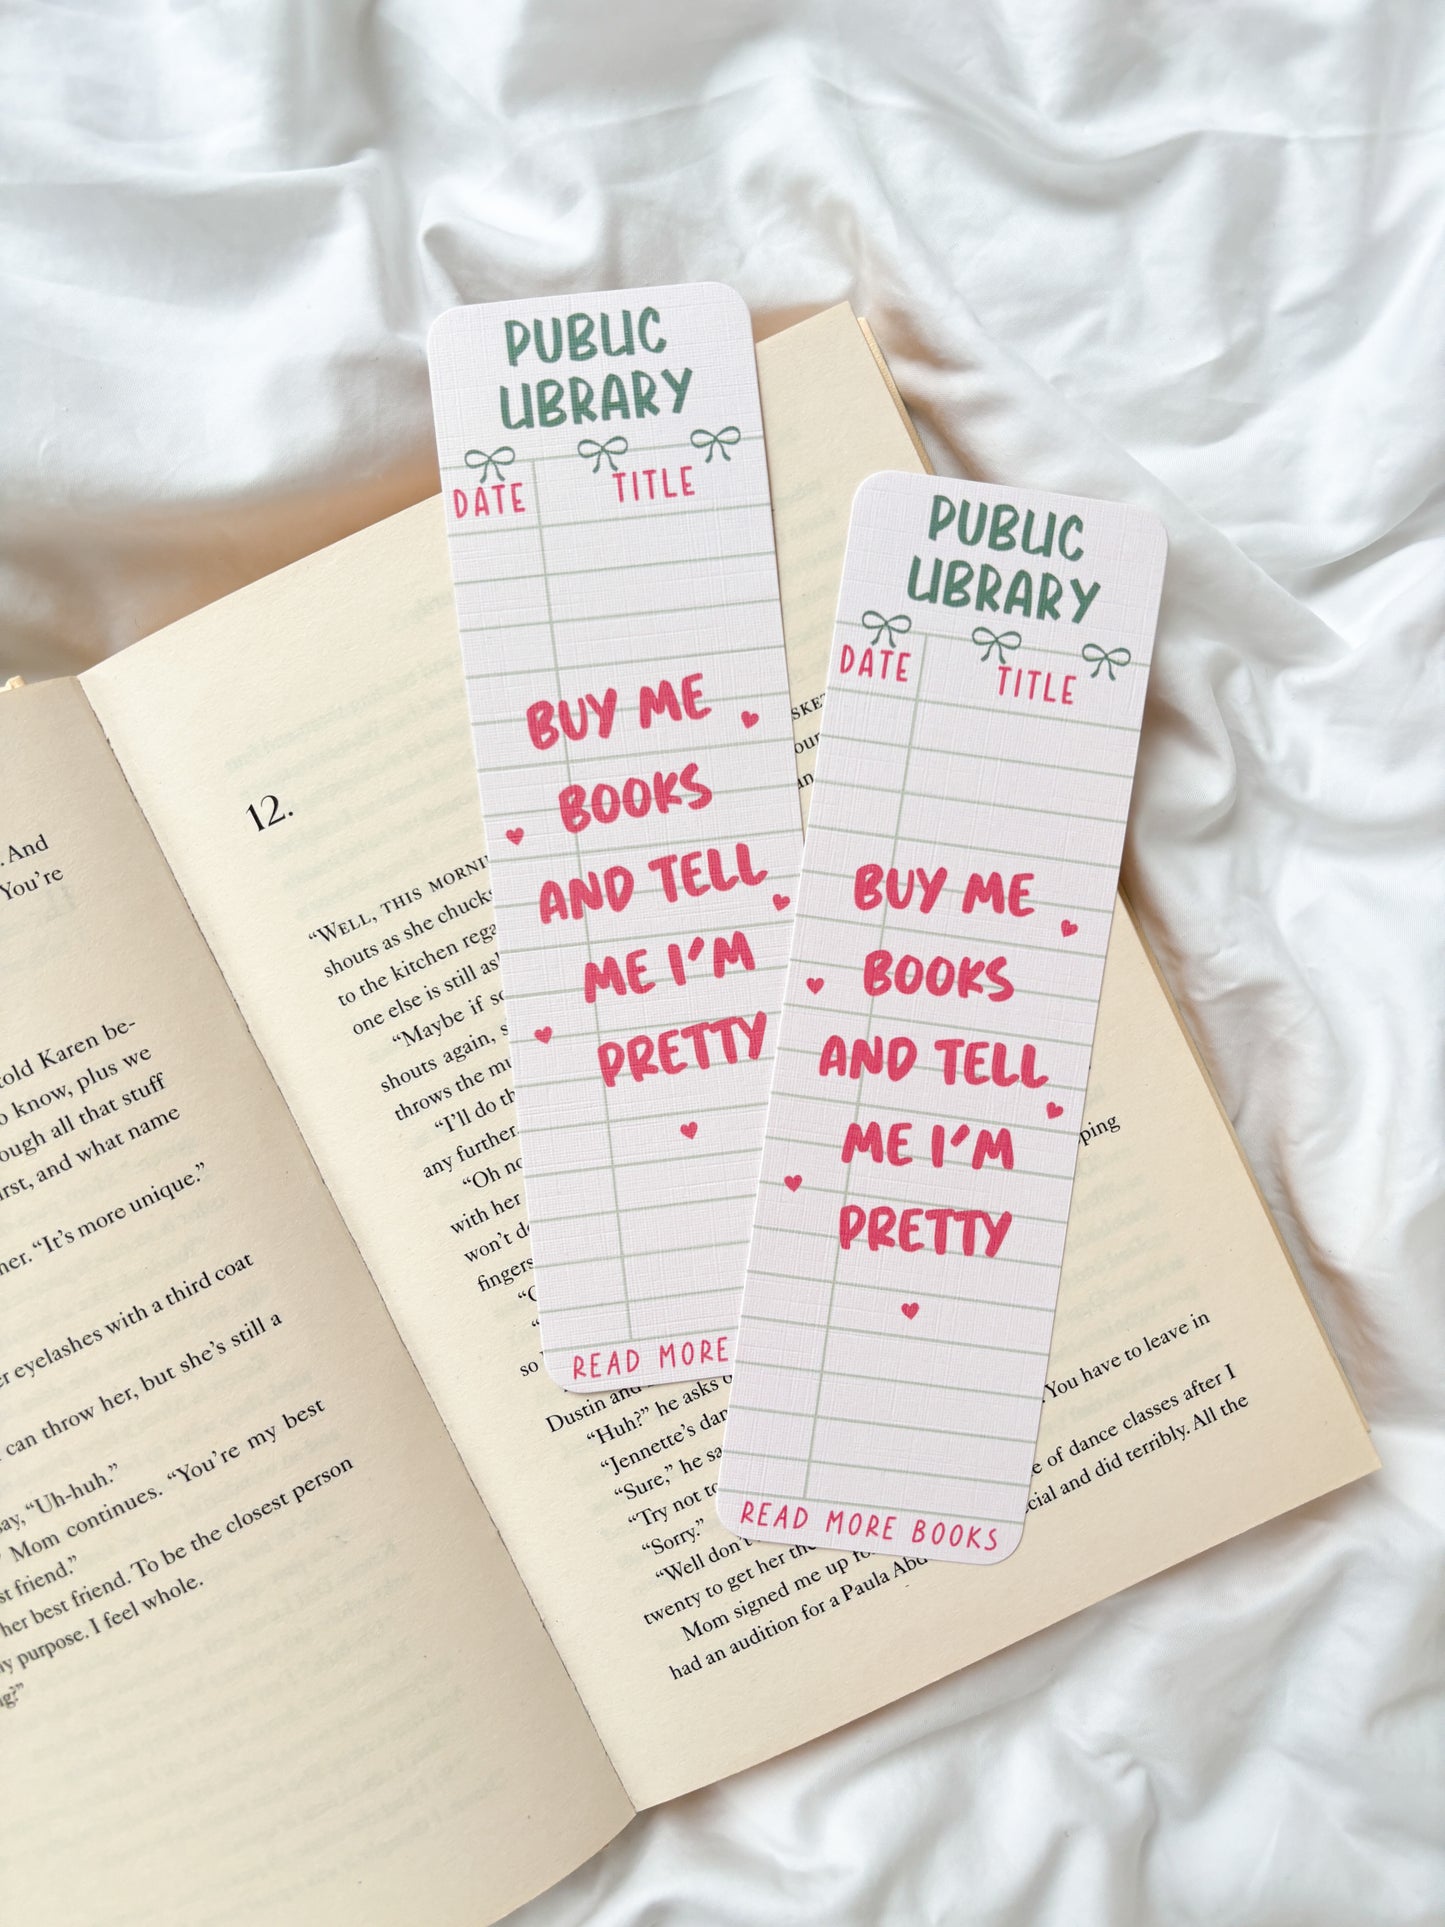 PUBLIC
LIBRARY
DATE TITLE
BUY ME
BOOKS
AND TELL
ME I'M
PRETTY
READ MORE
PUBLIC
LIBRARY
DATE TITLE
BUY ME
BOOKS
AND TELL
ME I'M
PRETTY
READ MORE BOOKS
. And
You're
told Karen be-
know, plus we
all that stuff
and what name
"It's more unique."
eyelashes with a third coat
can throw her, but she's still a
"Uh-huh."
Mom continues. "You're my best
friend."
her best friend. To be the closest person
purpose. I feel whole.
12.
"WELL, THIS
shouts as she
to the kitchen
one else is still
"Maybe if
shouts again,
throws the
"I'll do
any further
"Oh
with her
won't
fingers
so
Dustin and
"Huh?" he asks
"Jennette's
"Sure," he
"Try not to
"Sorry."
"Well don't
twenty to get her
Mom signed me up
had an audition for a Paula
You have to leave in
of dance classes after I
and did terribly. All the